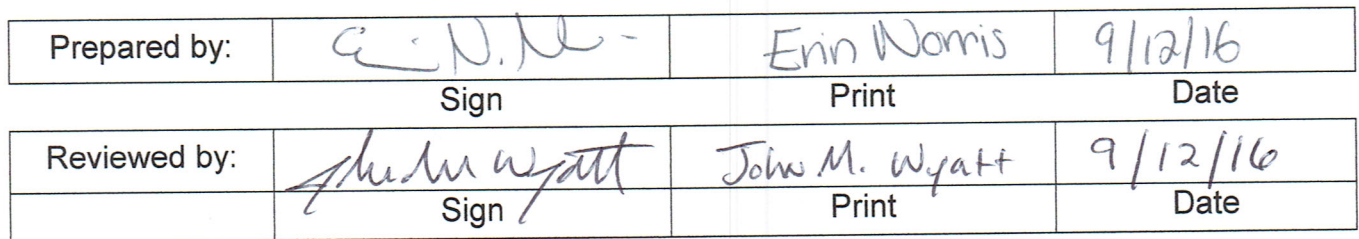 Prepared by: Erin Norris 9/12/16
Sign Print Date
Reviewed by: John M. Wyatt John M. Wyatt 9/12/16
Sign Print Date